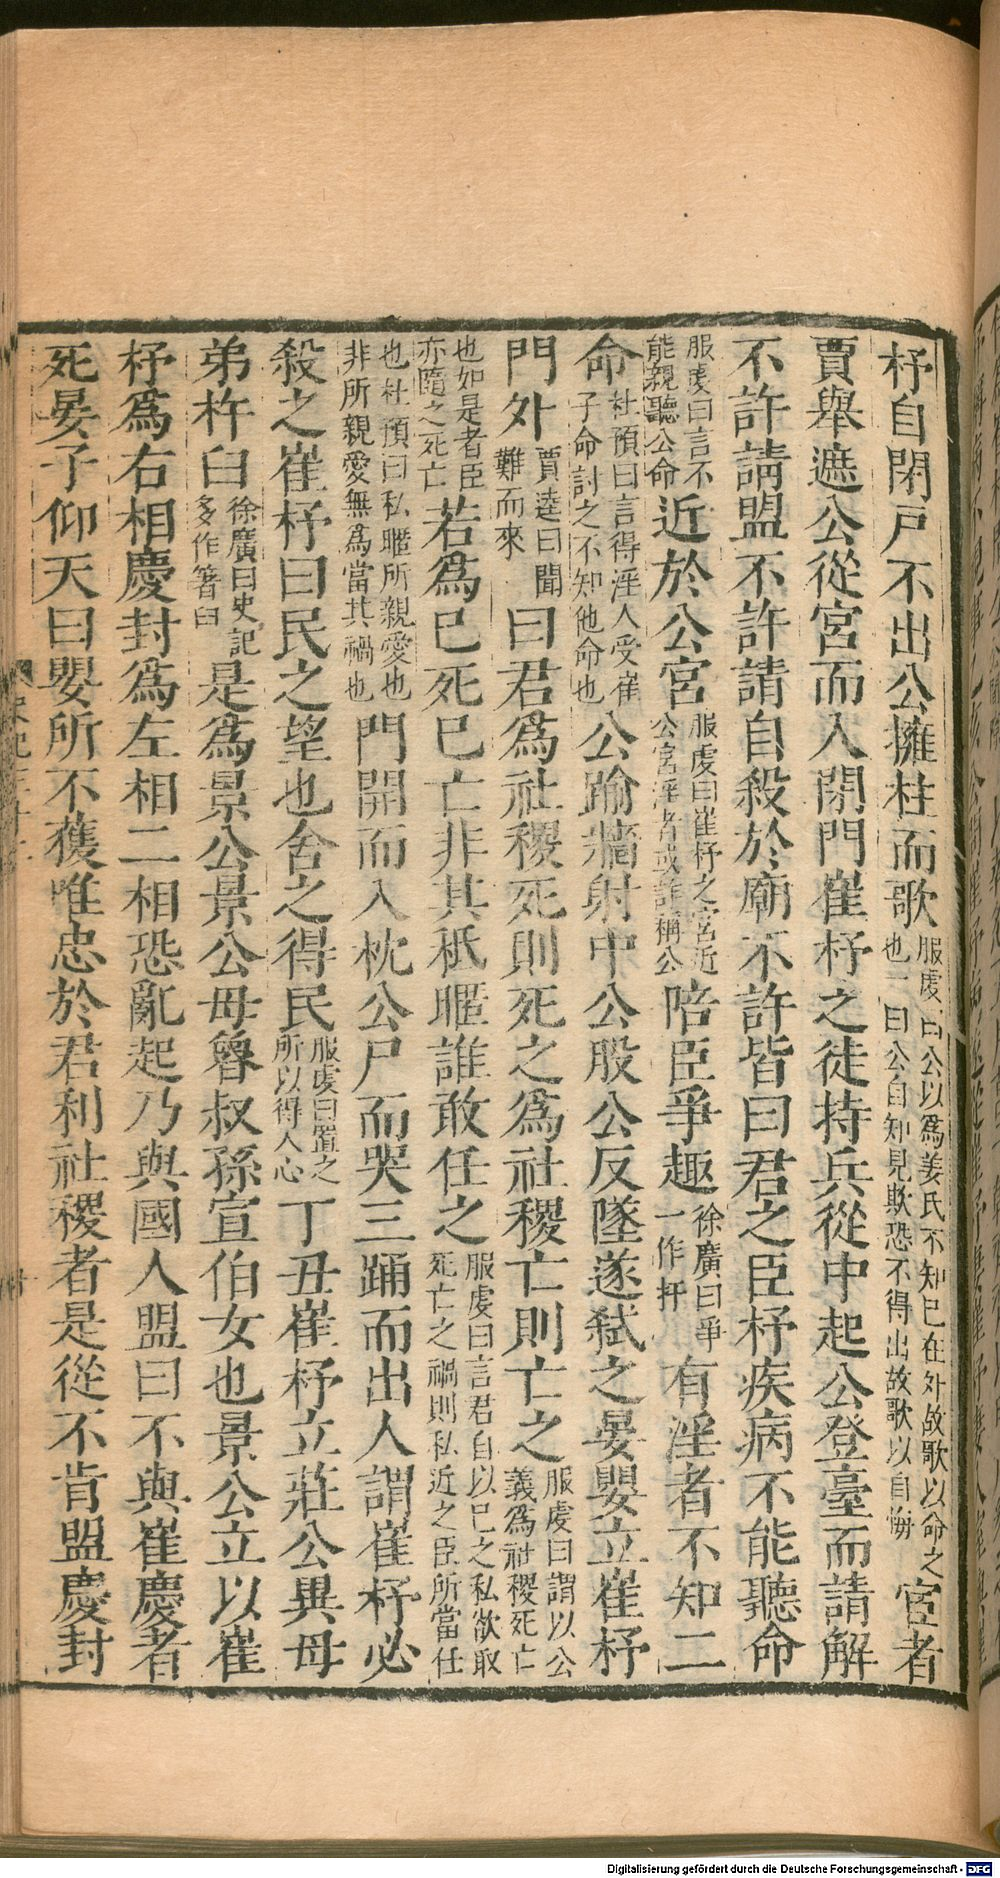 杼自閉戸不出公擁柱而歌服虔曰公以為姜氏不知已在外故歌以命之也一曰公自知見欺恐不得出故歌以自悔宦者
賈舉遮公從宮而入閉門崔杼之徒持兵從中起公登臺而請解
不許請盟不許請自殺於廟不許皆曰君之臣杼疾病不能聽命
服虔曰言不能親聽公命近於公宮服虔曰崔杼之宮近公宮淫者或詐稱公陪臣爭趣徐廣曰爭一作扞有淫者不知二
命杜預曰言得淫人受崔子命討之不知他命也公踰墻射中公股公反墜遂弑之晏嬰立崔杼
門外賈逵曰聞難而來曰君為社稷死則死之為社稷亡則亡之服虔曰謂以公義為社稷死亡
也如是者臣亦隨之死亡若為已死已亡非其私暱誰敢任之服虔曰言君自以已之私欲取死亡之禍則私近之臣所當任
也杜預曰私暱所親愛也非所親愛無為當其禍也門開而入枕公尸而哭三踊而出人謂崔杼必
殺之崔杼曰民之望也舍之得民服虔曰置之所以得人心丁丑崔杼立莊公異母
弟杵臼徐廣曰史記多作箸臼是為景公景公母魯叔孫宣伯女也景公立以崔
杼為右相慶封為左相二相恐亂起乃與國人盟曰不與崔慶者
死晏子仰天曰嬰所不獲唯忠於君利社稷者是從不肯盟慶封
Digitalisierung gefördert durch die Deutsche Forschungsgemeinschaft - DFG